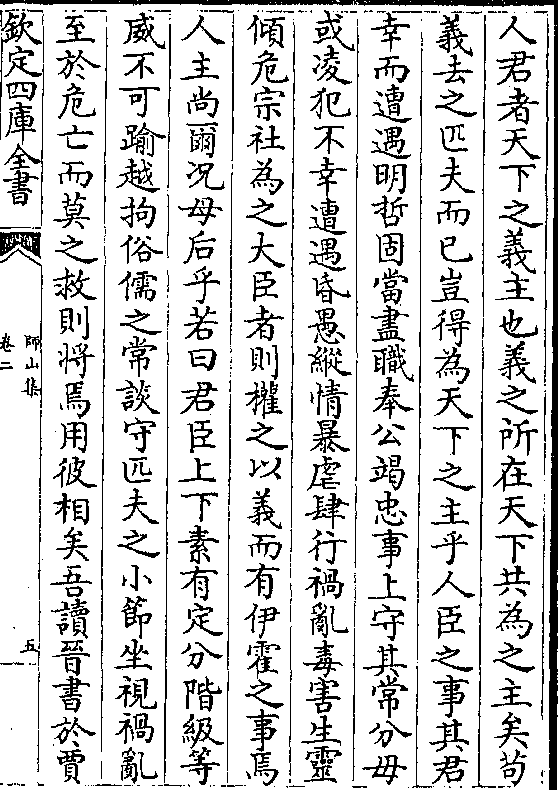 人君者天下之義主也義之所在天下共為之主矣苟
義去之匹夫而已豈得為天下之主乎人臣之事其君
幸而遭遇明哲固當盡職奉公竭忠事上守其常分毋
或凌犯不幸遭遇昏愚縱情暴虐肆行禍亂毒害生靈
傾危宗社為之大臣者則權之以義而有伊霍之事焉
人主尚爾况母后乎若曰君臣上下素有定分階級等
威不可踰越拘俗儒之常談守匹夫之小節坐視禍亂
至於危亡而莫之救則將焉用彼相矣吾讀晉書於賈
欽定四庫全書
師山集
卷二
五